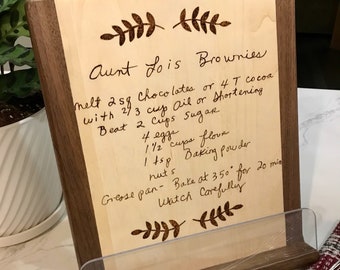 Aunt Lois Brownies
Melt 2 sq Chocolates or 4 T cocoa
with 2/3 cup Oil or Shortening
Beat 2 Cups Sugar
4 eggs
1 1/2 cups flour
1 tsp Baking powder
nuts
Grease pan - Bake at 350° for 20 min
Watch Carefully